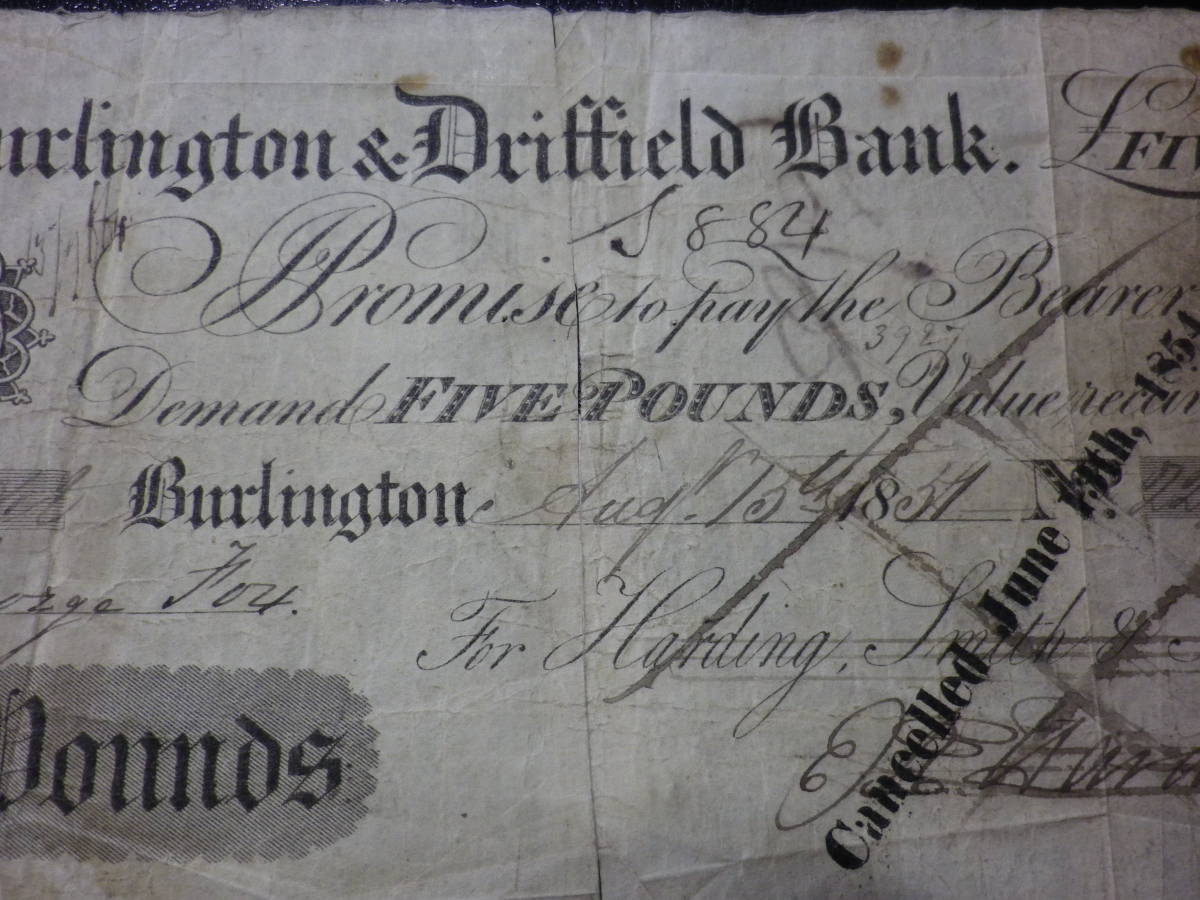 urlington & Driffield Bank. £FIV
S 884
Promise to pay the Bearer
3927
Demand FIVE POUNDS, Value recei
Burlington Augt. 15th 1854 N
orge Fox.
For Harding, Smith &
Pounds
Cancelled June 13th, 1854